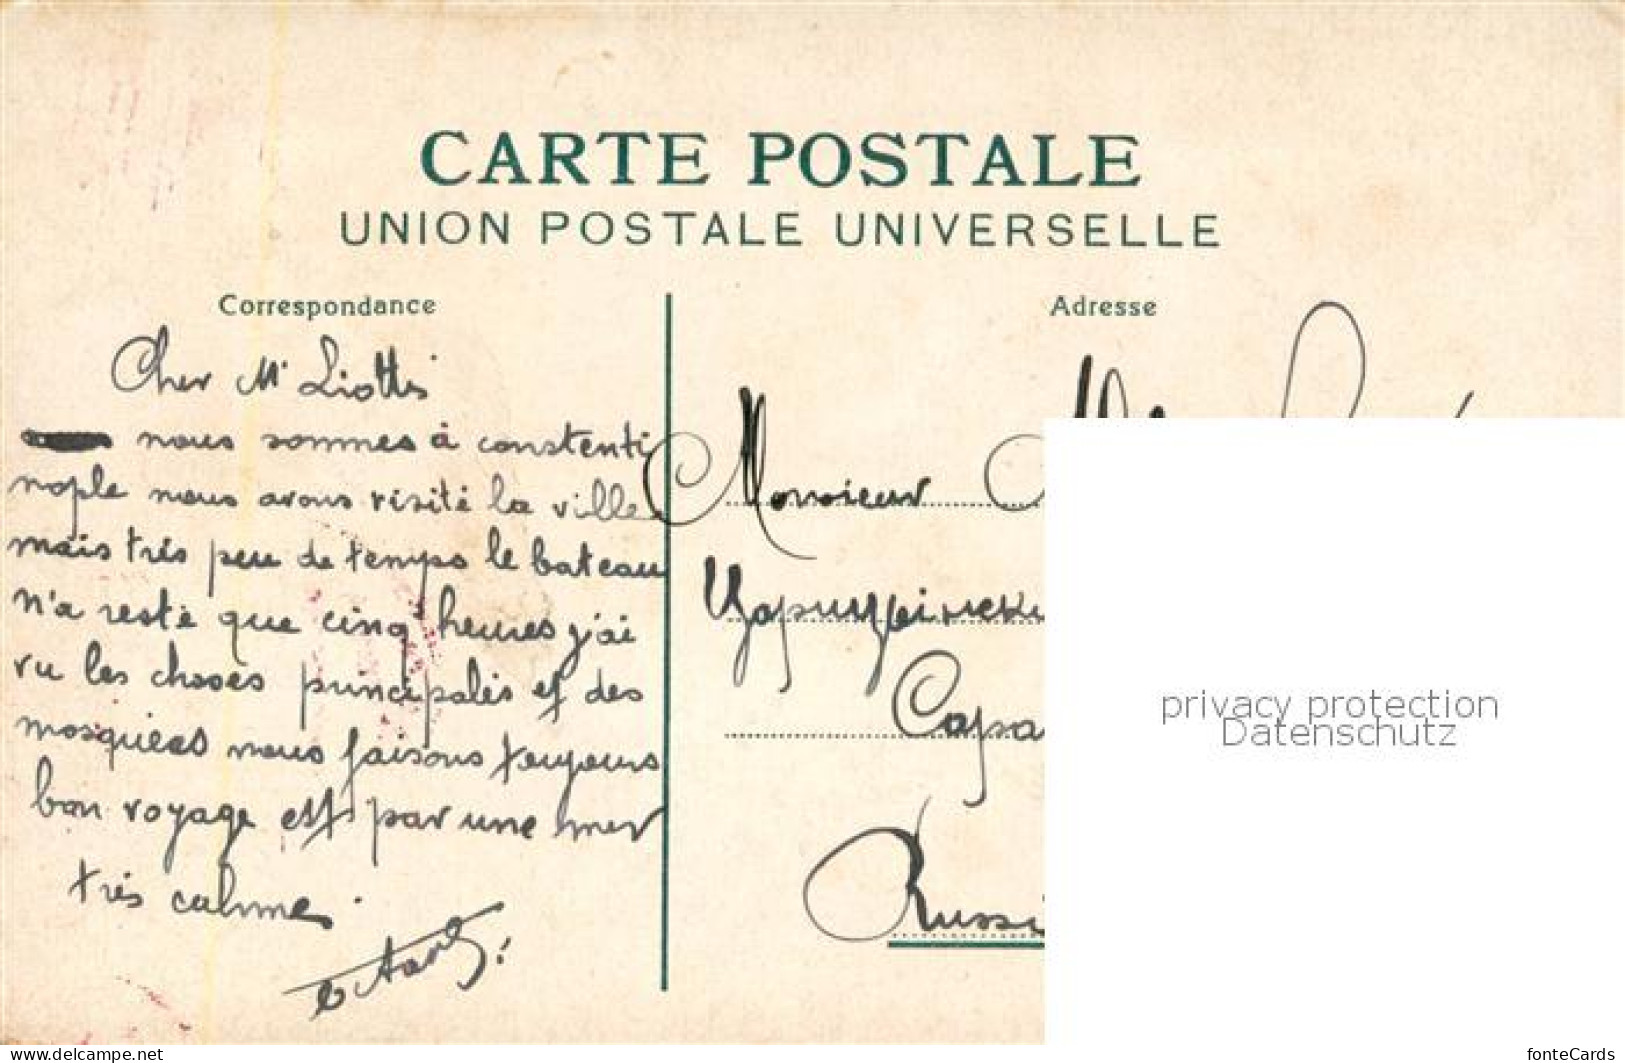 CARTE POSTALE
UNION POSTALE UNIVERSELLE
Correspondance
Adresse
Cher Mr Liotti
nous sommes à constenti
nople nous avons visité la ville
mais très peu de temps le bateau
n'a resté que cinq heures j'ai
vu les choses principales et des
mosquées nous faisons toujours
bon voyage et par une mer
très calme
Monsieur
Царицынск
Сара
Russi
privacy protection
Datenschutz
www.delcampe.net
fonteCards